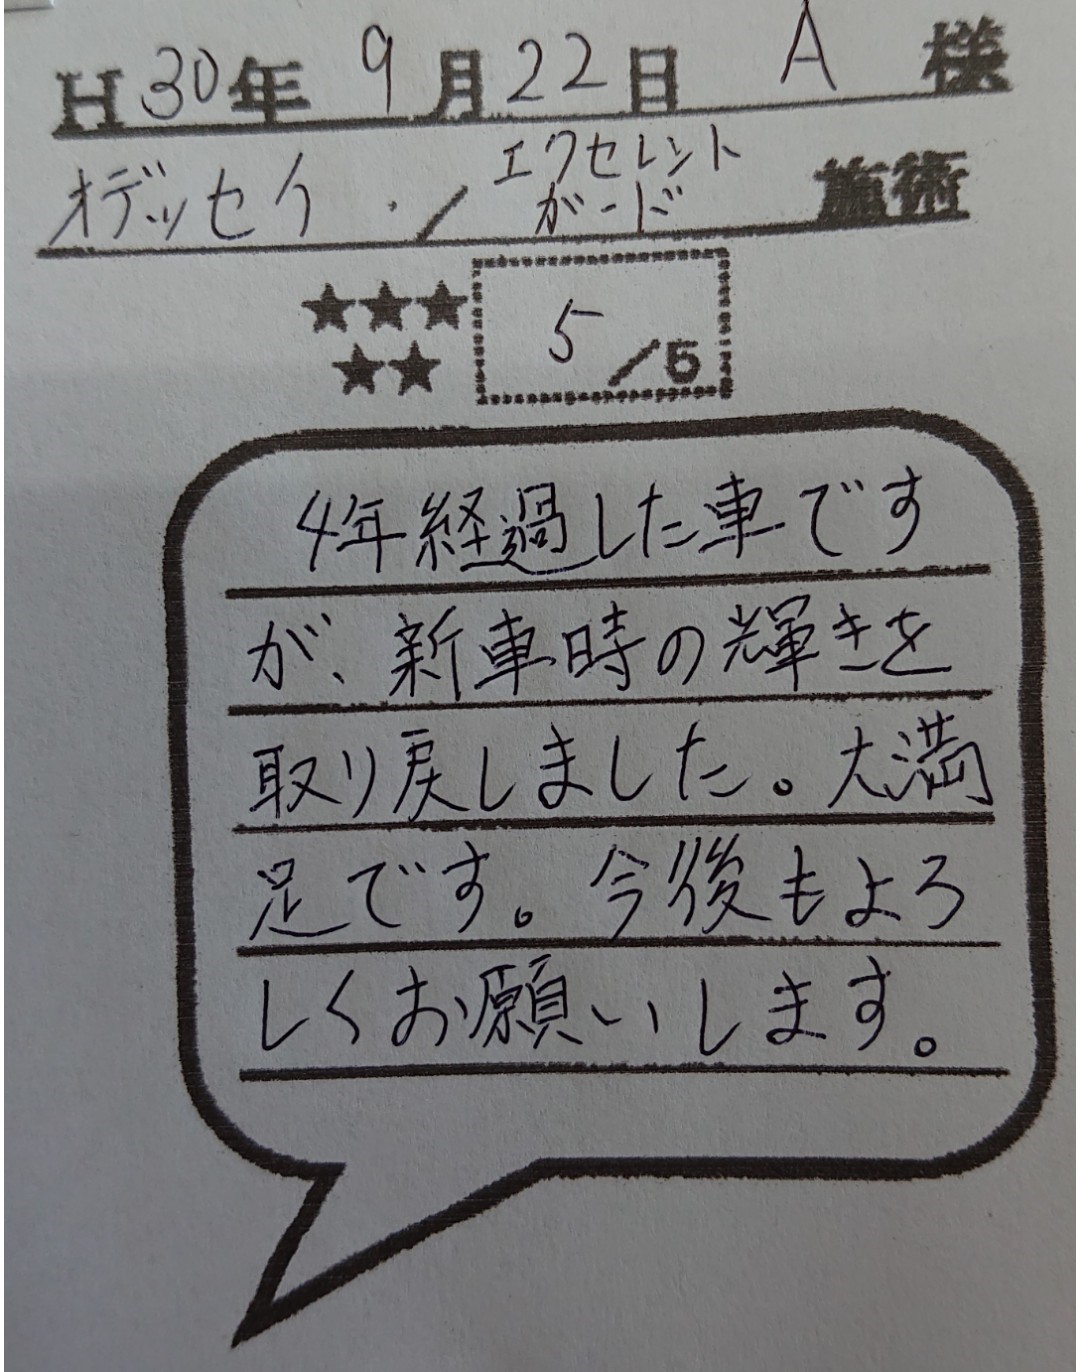 H30年 9月22日 A 様
オデッセイ ・／エクセレントガード 施術
★★★★★ 5／5
4年経過した車です
が、新車時の輝きを
取り戻しました。大満
足です。今後もよろ
しくお願いします。